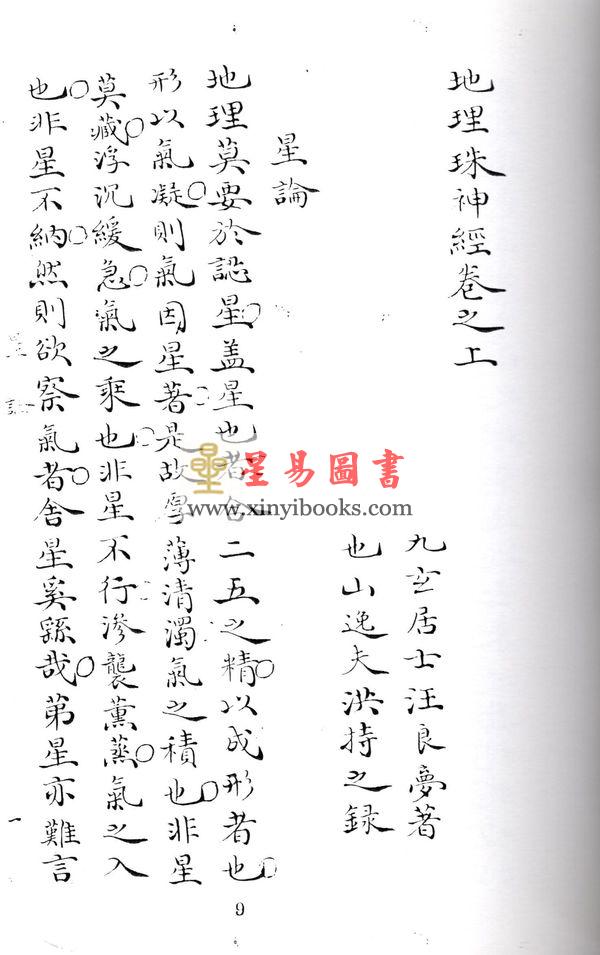 地理珠神經卷之上
九玄居士汪良夢著
也山逸夫洪持之録
星論
地理莫要於認星盖星也者合二五之精以成形者也
形以氣凝則氣因星著是故厚薄清濁氣之積也非星
莫藏浮沉緩急氣之乘也非星不行滲襲薰蒸氣之入
也非星不納然則欲察氣者舍星奚繇哉第星亦難言
星論
一
星易圖書
www.xinyibooks.com
9